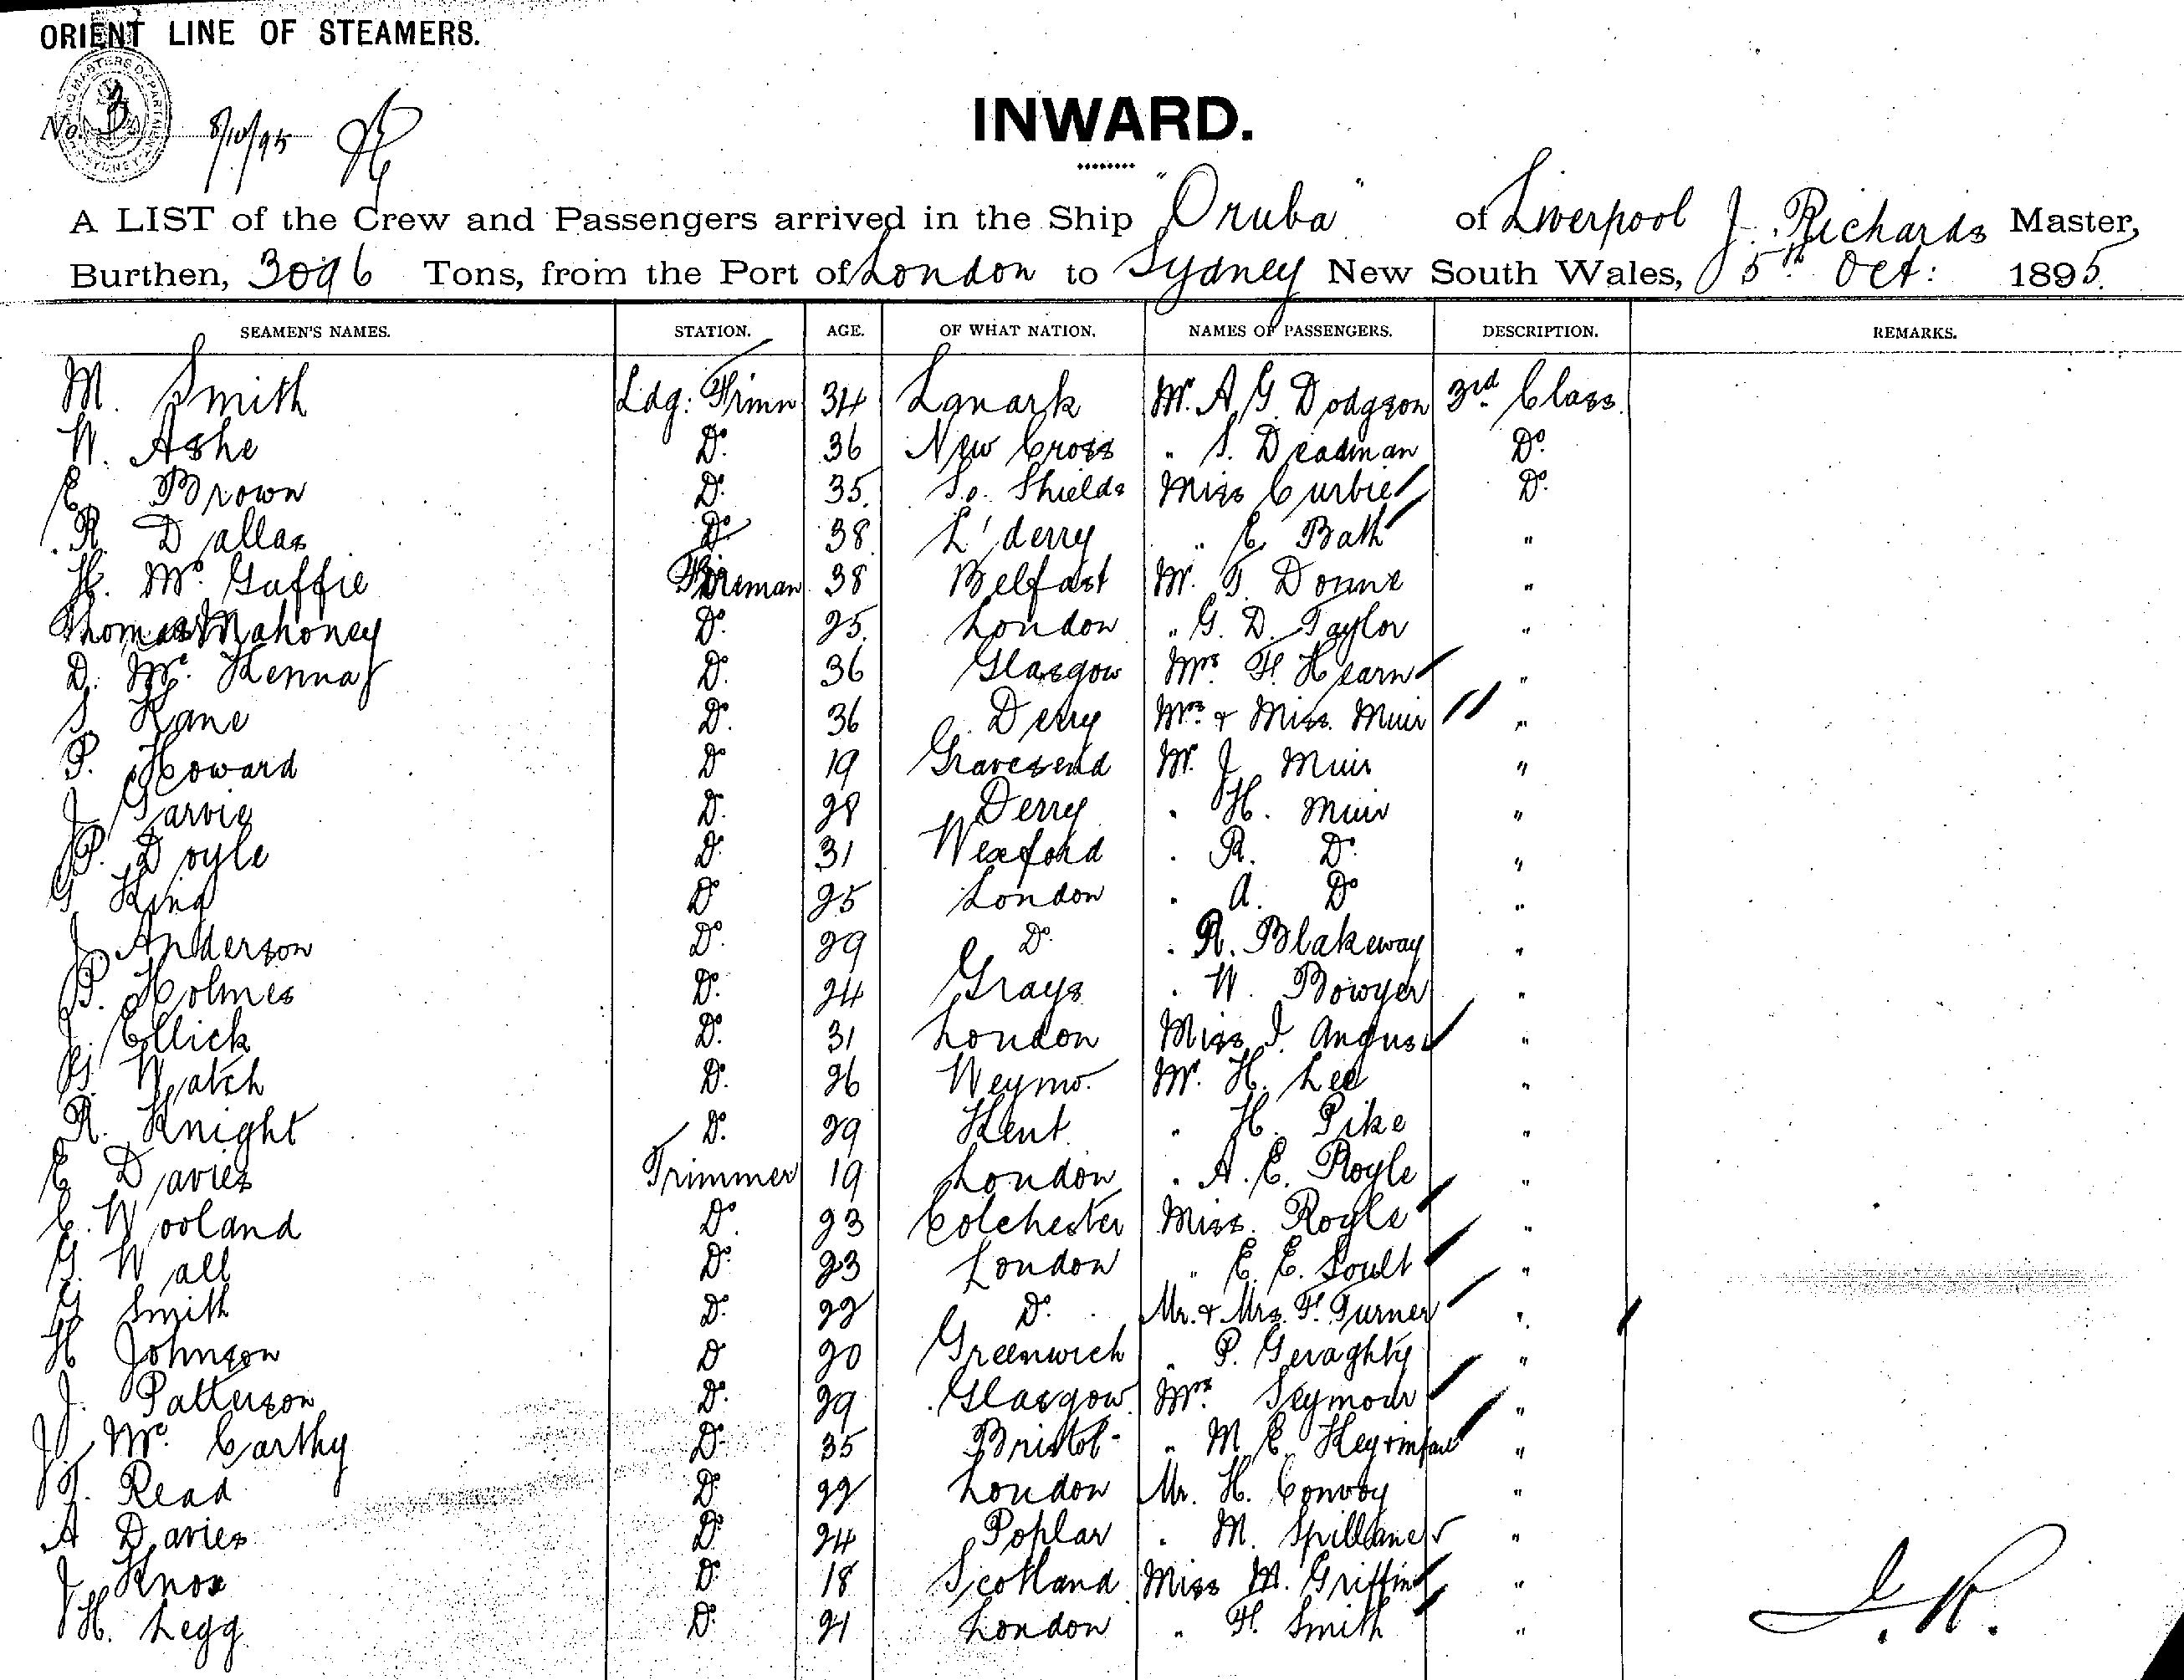 ORIENT LINE OF STEAMERS.
No. 3 8/10/95
INWARD.
A LIST of the Crew and Passengers arrived in the Ship "Oruba" of Liverpool J. Richards Master,
Burthen, 3096 Tons, from the Port of London to Sydney New South Wales, 5th Oct: 1895.
SEAMEN'S NAMES. STATION. AGE. OF WHAT NATION. NAMES OF PASSENGERS. DESCRIPTION. REMARKS.
M. Smith Ldg: Trimr 34 Lanark Mr. A. G. Dodgson 3rd Class.
W. Ashe Do. 36 New Cross " S. Deadman Do.
E. Brown Do. 35. So. Shields Miss Curbie Do.
R. Dallas Do 38 L'derry " E. Bath "
H. Mc. Guffie Fireman 38 Belfast Mr. T. Donne "
Thomas Mahoney Do. 25. London " G. D. Taylor "
D. Mc. Kenna Do. 36 Glasgow Mrs. F. Hearn "
S. Kane Do. 36 Derry Mrs. & Miss. Muir "
P. Howard Do 19 Gravesend Mr. J. Muir "
J. Garvie Do. 28 Derry " H. Muir "
P. Doyle Do. 31 Wexford " R. Do. "
G King Do 25 London " A. Do "
J. Anderson Do. 29 Do. " R. Blakeway "
P. Holmes Do. 24 Grays " W. Bowyer "
J. Ellick Do. 31 London Miss J. Angus "
G. Watch Do. 26 Weymo. Mr. H. Lee "
R. Knight Do. 29 Kent " H. Pike "
E Davies Trimmer 19 London " A. E. Royle "
C. Wooland Do. 23 Colchester Miss. Royle "
G. Wall Do. 23 London " E. E. Soult "
G Smith Do. 22 Do. Mr. & Mrs. F. Turner "
H Johnson Do 20 Greenwich " P. Geraghty "
J. Patterson Do. 29 Glasgow Mrs. Seymour "
J. Mc. Carthy Do. 35 Bristol " M. E. Key & infant "
T. Read Do 22 London Mr. H. Convoy "
A Davies Do 24 Poplar " M. Spillane "
J. Knox Do 18 Scotland Miss M. Griffin "
H. Legg Do. 21 London " F. Smith "
J. R.